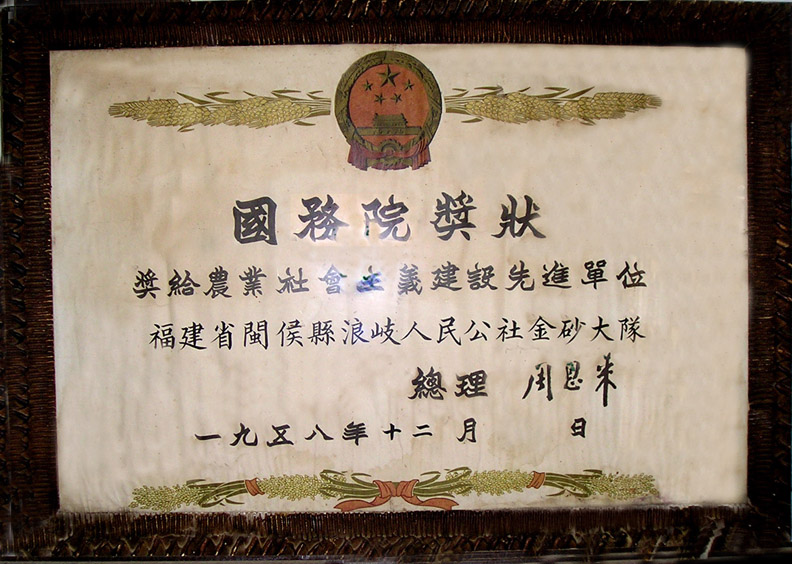 國務院獎狀
獎給農業社會主義建設先進單位
福建省閩侯縣浪岐人民公社金砂大隊
總理 周恩来
一九五八年十二月 日